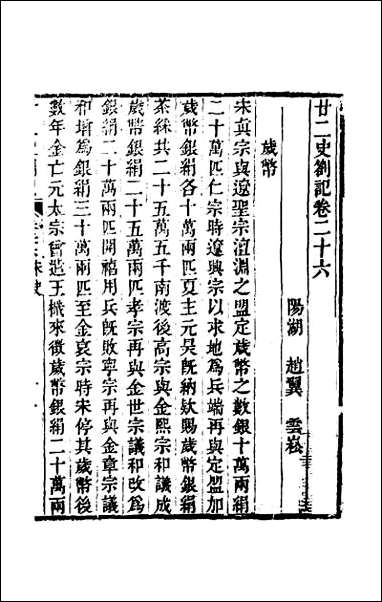 廿二史劄記卷二十六
陽湖　趙翼　雲崧
歲幣
宋真宗與遼聖宗澶淵之盟定歲幣之數銀十萬兩絹
二十萬匹仁宗時遼興宗以求地為兵端再與定盟加
歲幣銀絹各十萬兩匹夏主元昊既納欵賜歲幣銀絹
茶綵共二十五萬五千南渡後高宗與金熙宗和議成
歲幣銀絹二十五萬兩匹孝宗再與金世宗議和改為
銀絹二十萬兩匹開禧用兵既敗寧宗再與金章宗議
和增為銀絹三十萬兩匹至金哀宗時宋停其歲幣後
數年金亡元太宗曾遣王檝來徵歲幣銀絹二十萬兩